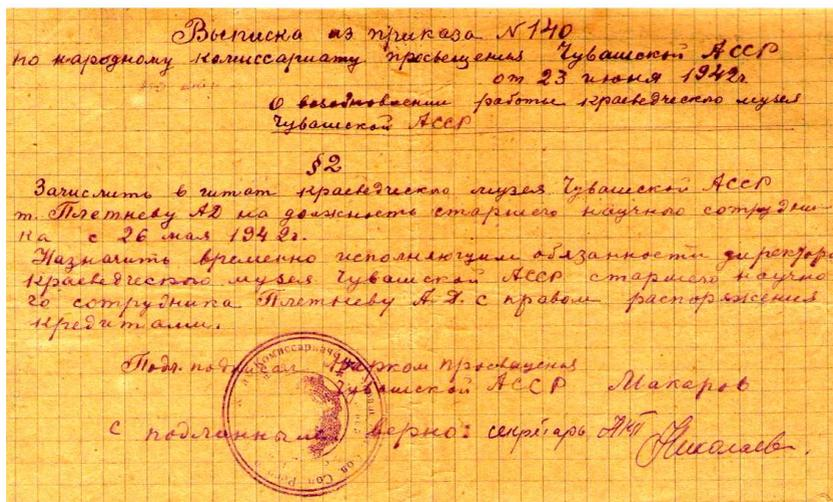 Выписка из приказа N 140
по народному комиссариату просвещения Чувашской АССР
от 23 июня 1942г
О возобновлении работы краеведческого музея
Чувашской АССР
§2
Зачислить в штат краеведческого музея Чувашской АССР
т. Плетневу АД на должность старшего научного сотрудни-
ка с 26 мая 1942г.
Назначить временно исполняющим обязанности директора
краеведческого музея Чувашской АССР старшего научно
го сотрудника Плетневу А.Д. с правом распоряжения
кредитами.
Подл. подписал Нарком просвещения
Чувашской АССР Макаров
С подлинным верно: секретарь НКП
Николаев.